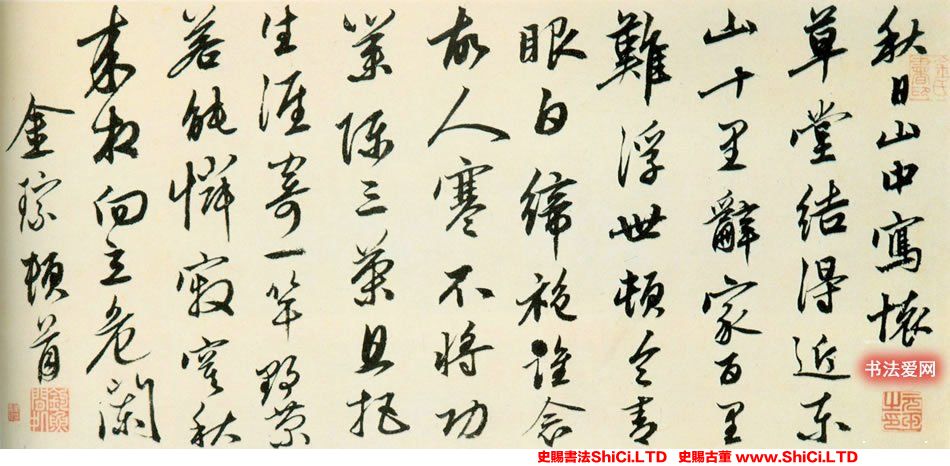 秋日山中寫懷
草堂結得近東
山十里辭家百里
難浮世頓令青
眼白綈袍誰念
故人寒不將功
業陳三策且把
生涯寄一竿野菊
若能憐寂寞秋
來相向立危闌
金琮頓首
书法爱网
史賜書法ShiCi.LTD 史賜古董 www.ShiCi.LTD